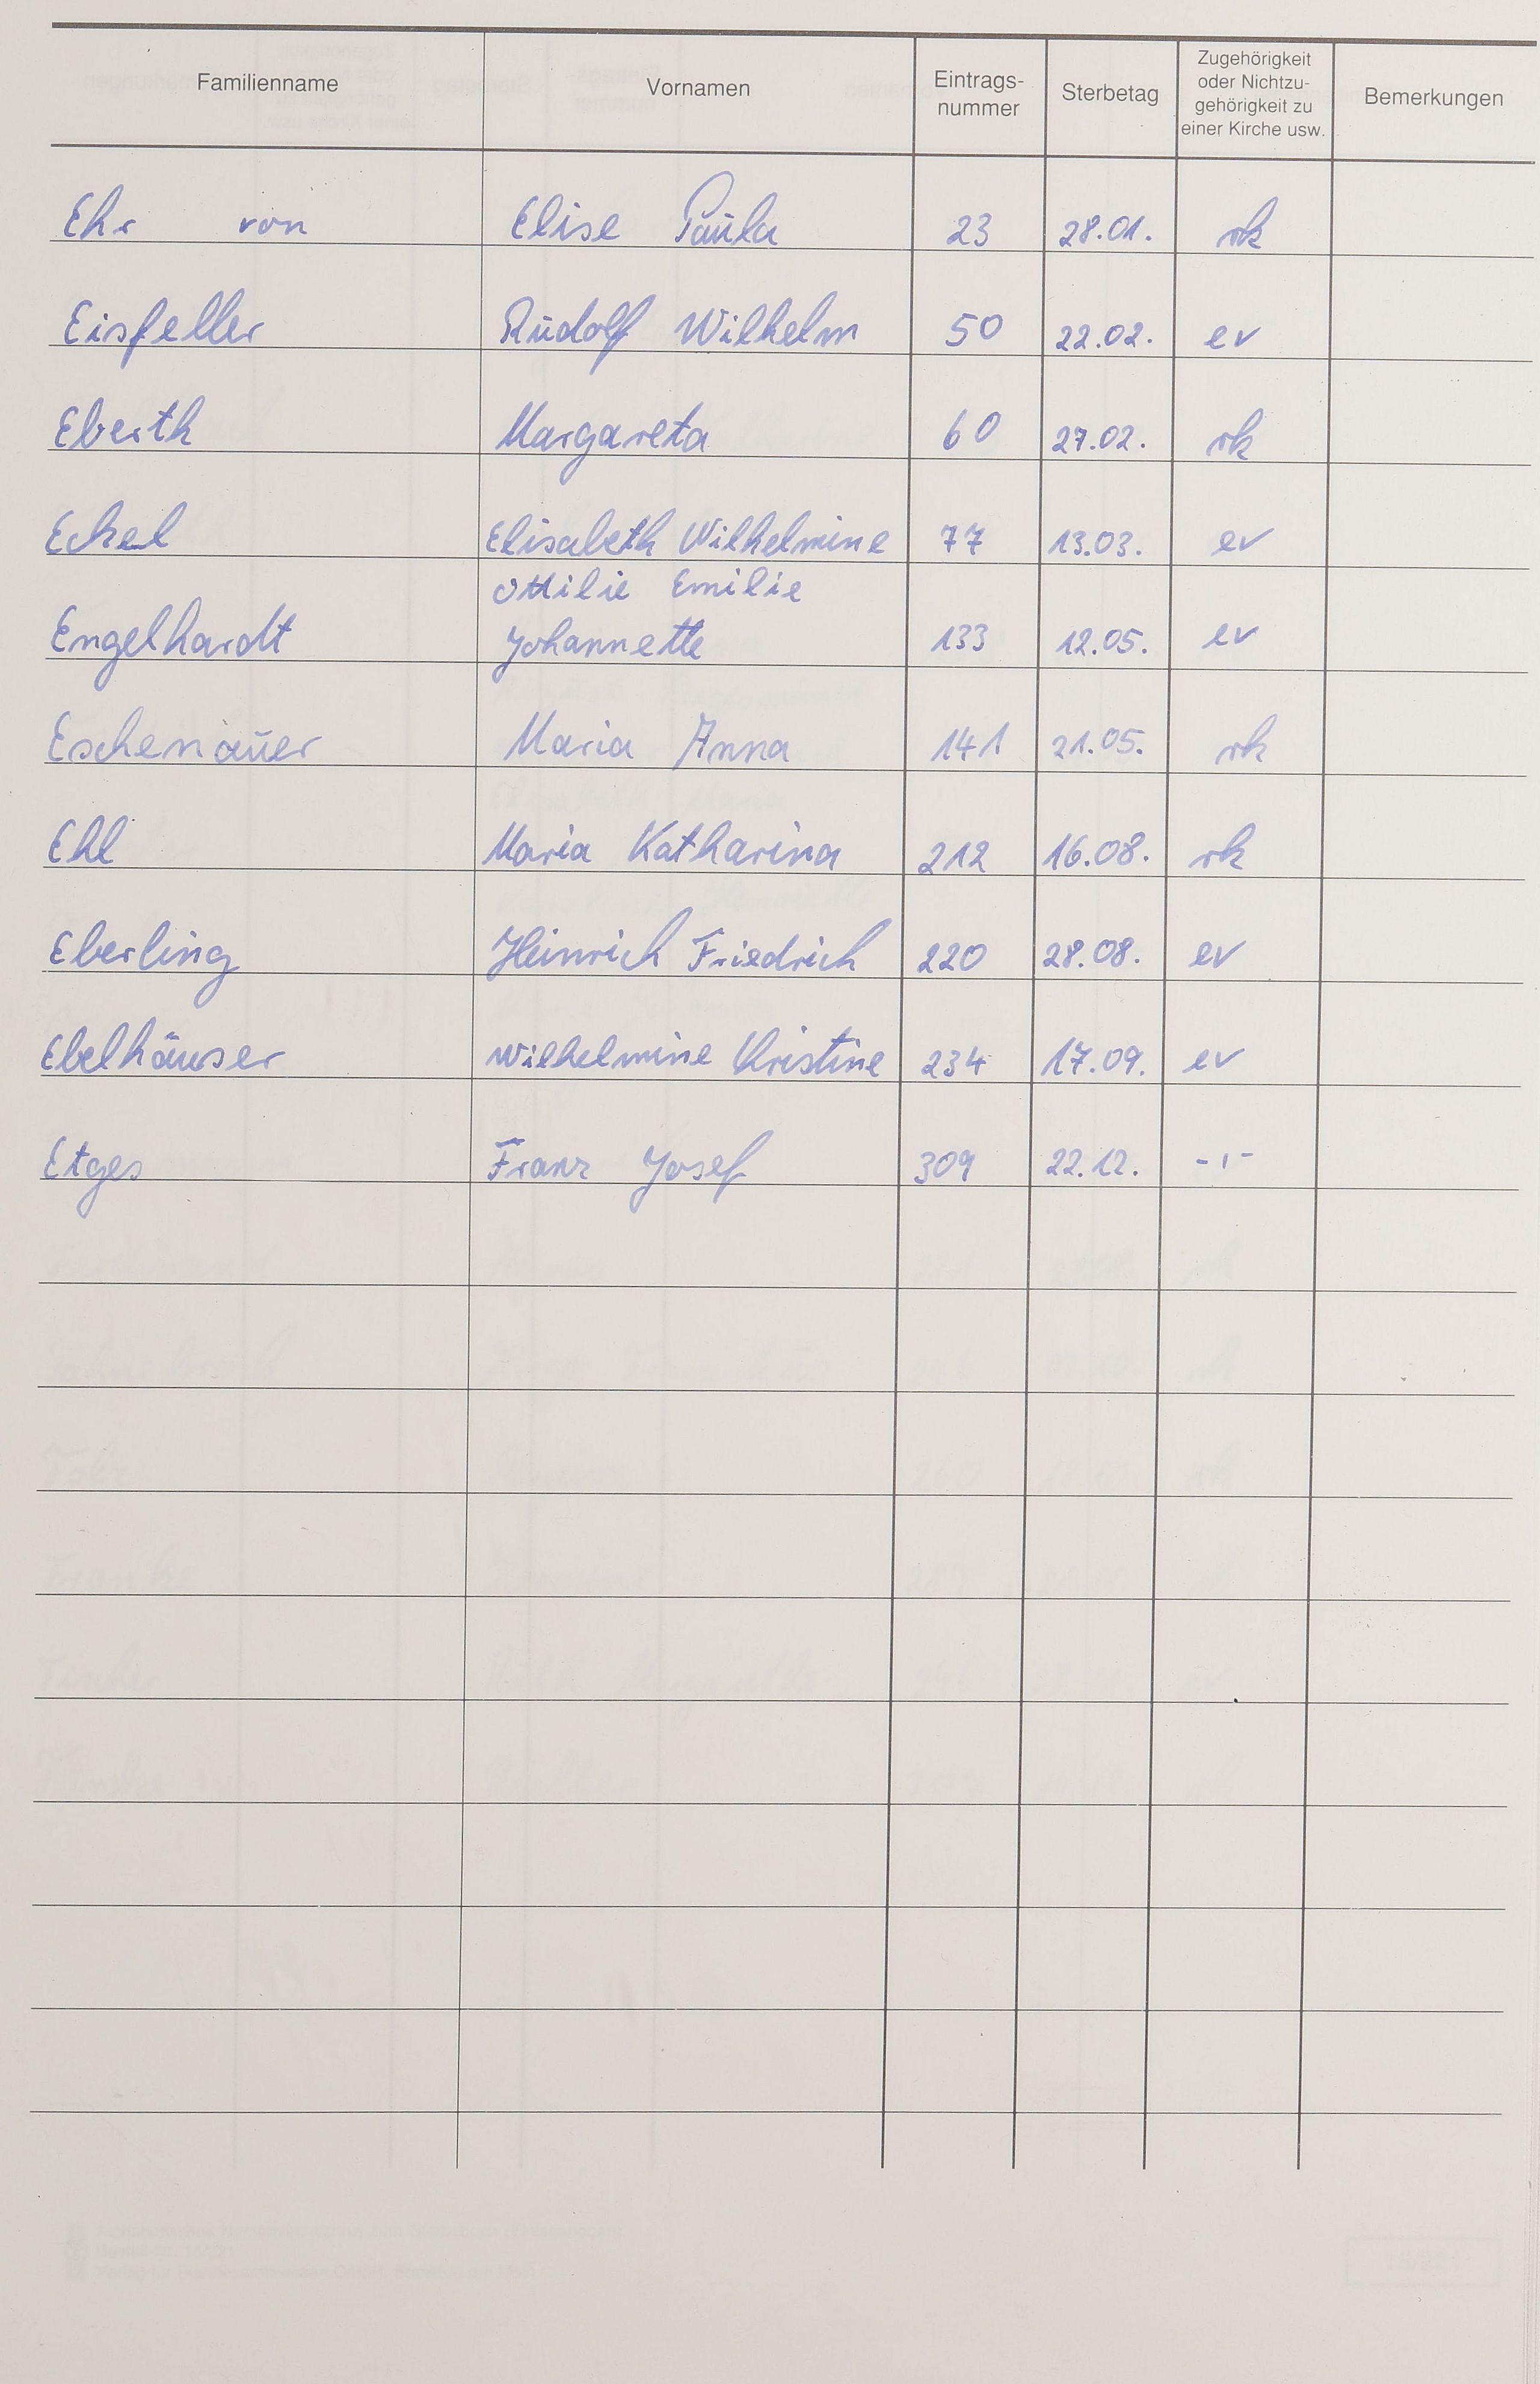 Familienname Vornamen Eintrags-nummer Sterbetag Zugehörigkeit oder Nichtzu-gehörigkeit zu einer Kirche usw. Bemerkungen
Ehr von Elise Paula 23 28.01. rk
Eisfeller Rudolf Wilhelm 50 22.02. ev
Eberth Margareta 60 27.02. rk
Eckel Elisabeth Wilhelmine 77 13.03. ev
Ottilie Emilie
Engelhardt Johannette 133 12.05. ev
Eschenauer Maria Anna 141 21.05. rk
Ehl Maria Katharina 212 16.08. rk
Eberling Heinrich Friedrich 220 28.08. ev
Ebelhäuser Wilhelmine Christine 234 17.09. ev
Etges Franz Josef 309 22.12. -,-